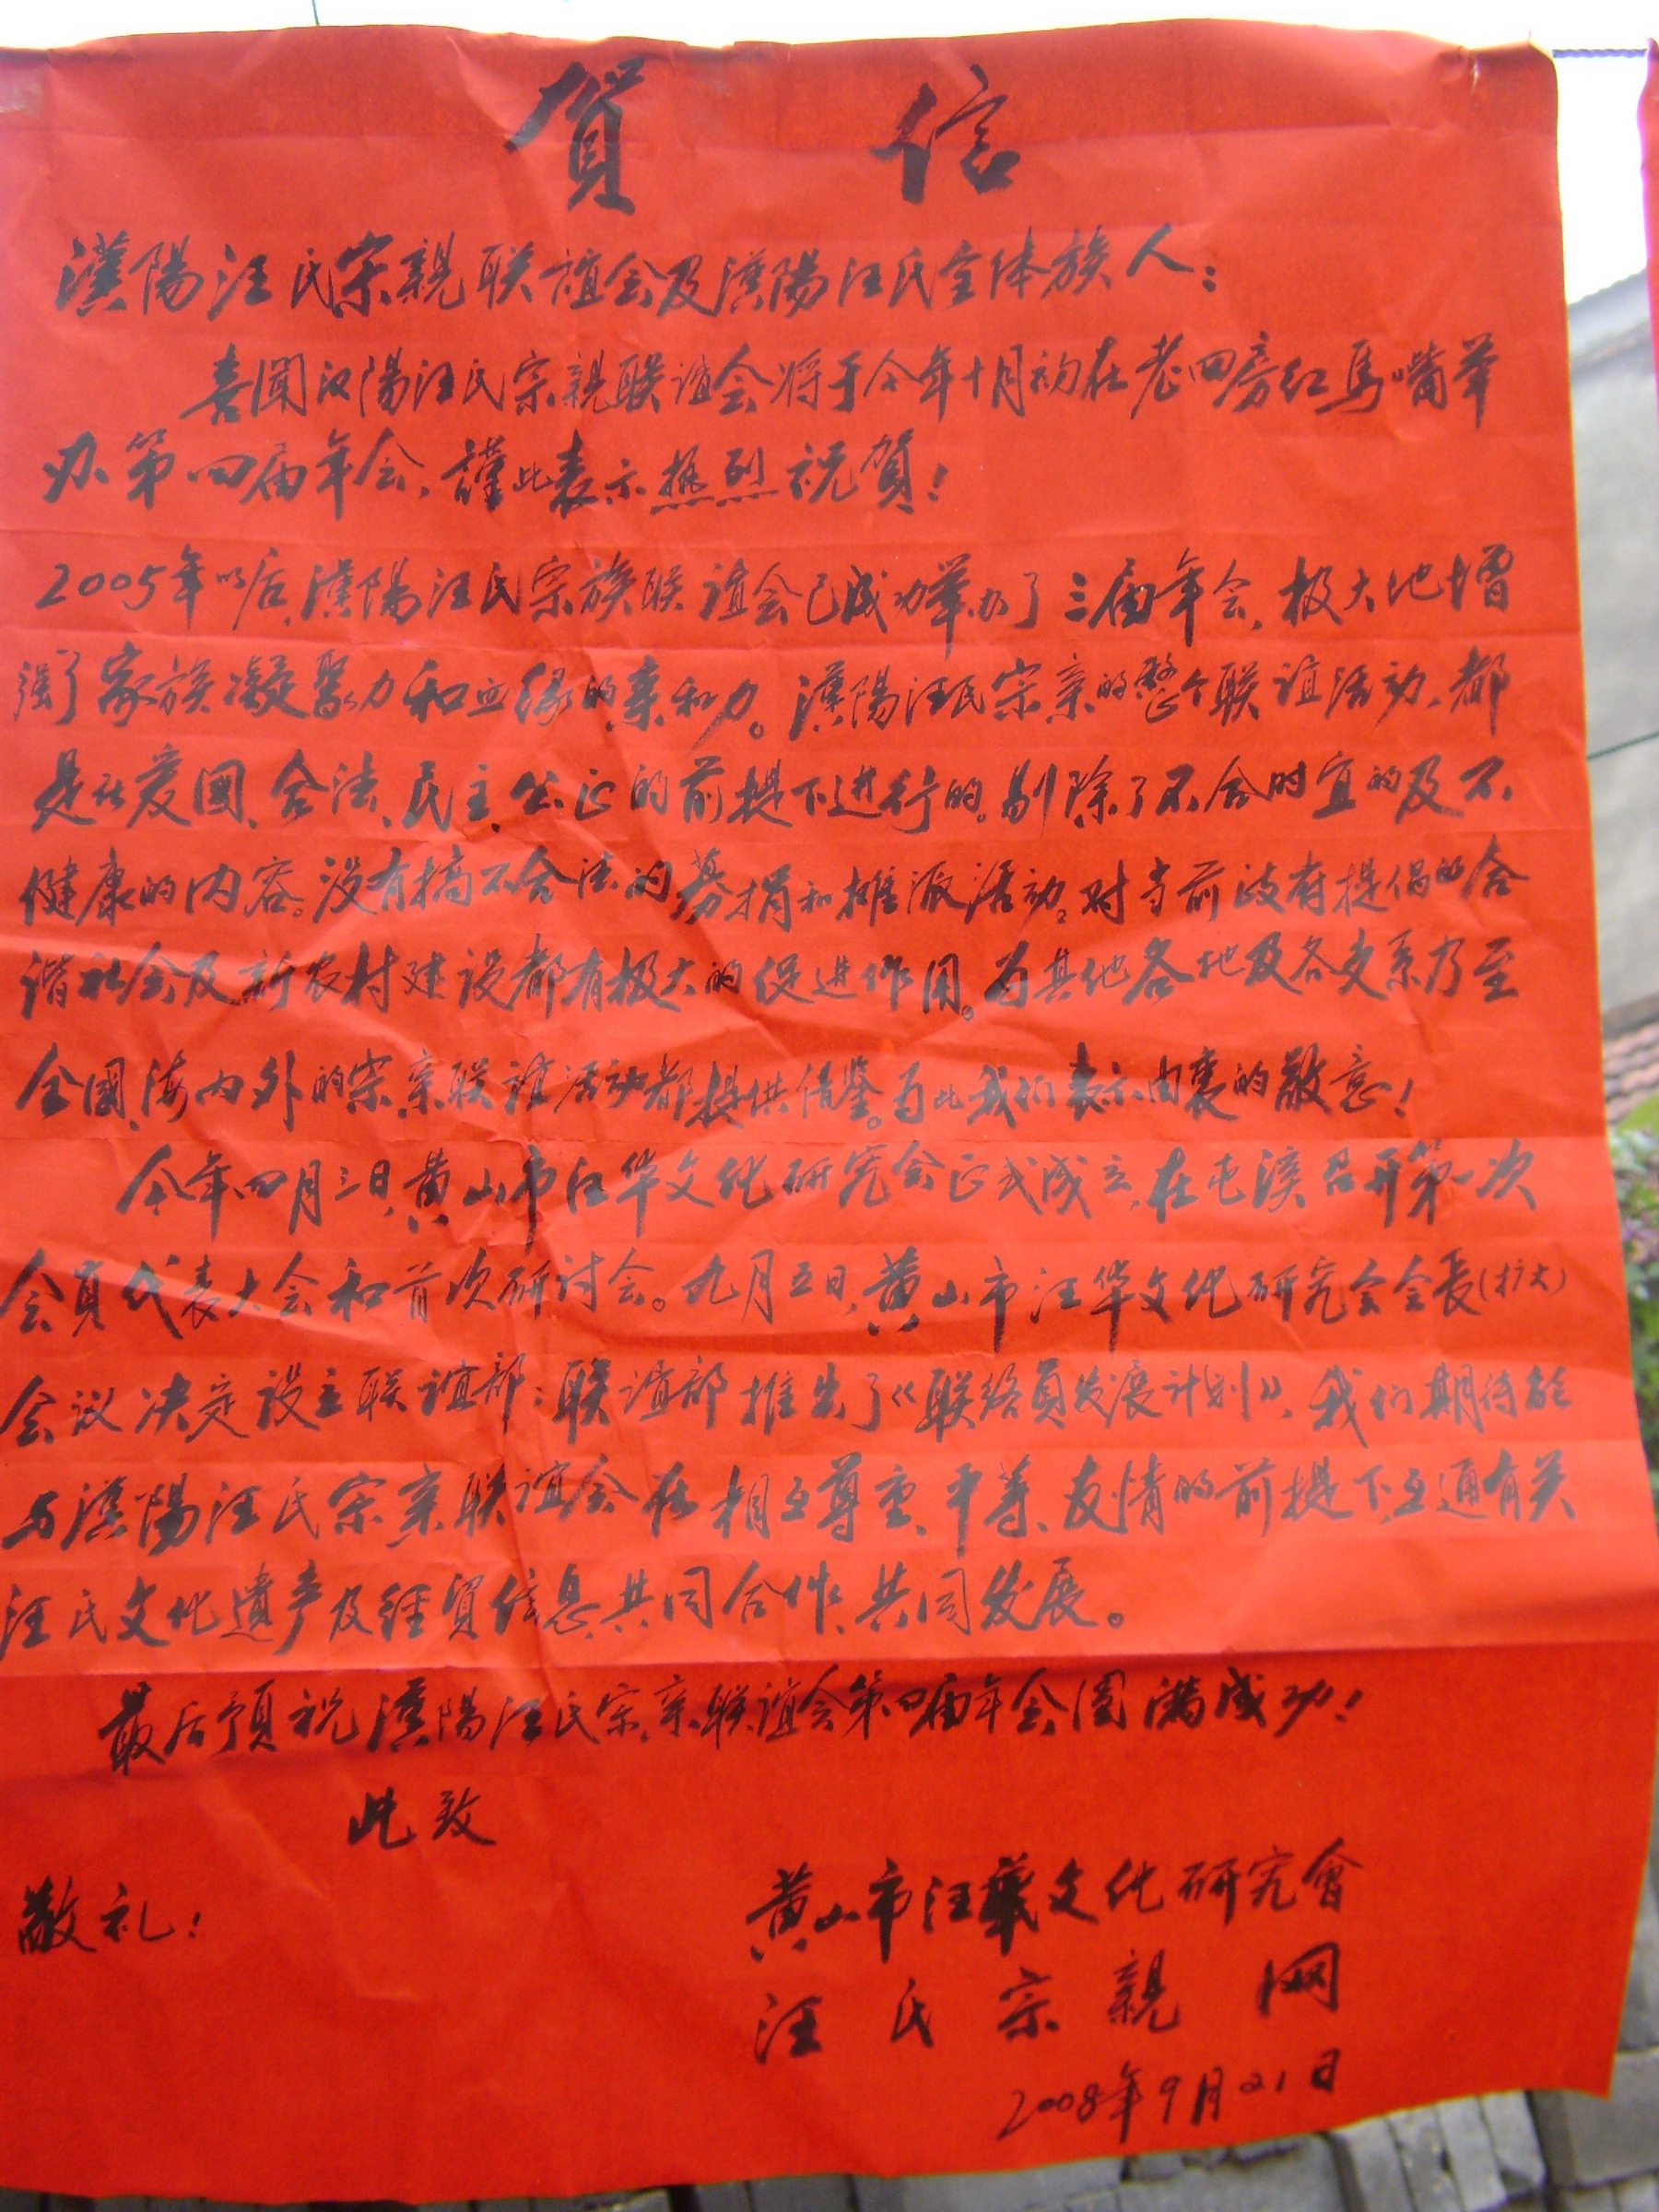 賀信
漢陽汪氏宗親联誼会及漢陽汪氏全体族人：
喜聞汉陽汪氏宗親联誼会将于今年十月初在老四房红馬嘴举
办第四届年会，謹此表示热烈祝賀！
2005年以后，漢陽汪氏宗族联誼会已成功举办了三届年会，极大地增
强了家族凝聚力和血缘的亲和力。漢陽汪氏宗亲的整个联谊活动，都
是在爱國、合法、民主、公正的前提下进行的。剔除了不合时宜的及不
健康的内容。没有搞不合法的募捐和摊派活动。对当前政府提倡的合
谐社会及新农村建设都有极大的促进作用。为其他各地及各支系乃至
全國、海内外的宗亲联谊活动都提供借鉴。为此我们表示由衷的敬意！
今年四月三日，黄山市汪华文化研究会正式成立，在屯溪召开第一次
会員代表大会和首次研讨会。九月五日，黄山市汪华文化研究会会長（扩大）
会议决定设立联谊部；联谊部推出了《联络員发展计划》，我们期待能
与漢陽汪氏宗亲联谊会在相互尊重、平等、友情的前提下，互通有关
汪氏文化遗产及经贸信息，共同合作，共同发展。
最后預祝漢陽汪氏宗亲联谊会第四届年会圆满成功！
此致
敬礼！
黄山市汪華文化研究會
汪氏宗親网
2008年9月21日